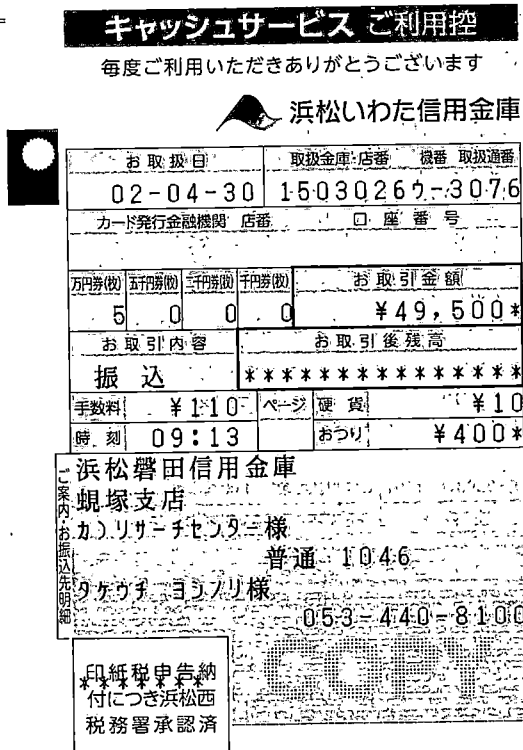 キャッシュサービス ご利用控
毎度ご利用いただきありがとうございます
浜松いわた信用金庫
お取扱日 取扱金庫・店番 機番 取扱通番
02-04-30 1503026ウ-3076
カード発行金融機関 店番 口座番号
万円券(枚) 五千円券(枚) 二千円券(枚) 千円券(枚) お取引金額
5 0 0 0 ¥49,500*
お取引内容 お取引後残高
振込 **************
手数料 ¥110 ページ 硬貨 ¥10
時刻 09:13 おつり ¥400*
ご案内・お振込先明細
浜松磐田信用金庫
蜆塚支店
カ)リサーチセンター様
普通 1046
タケウチ ヨシノリ様
053-440-8100
COPY
印紙税申告納
*******
付につき浜松西
税務署承認済